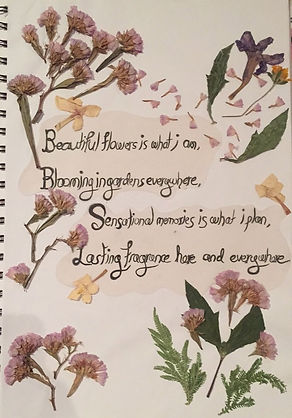 Beautiful flowers is what i am,
Blooming in gardens everywhere,
Sensational memories is what i plan,
Lasting fragrance here and everywhere